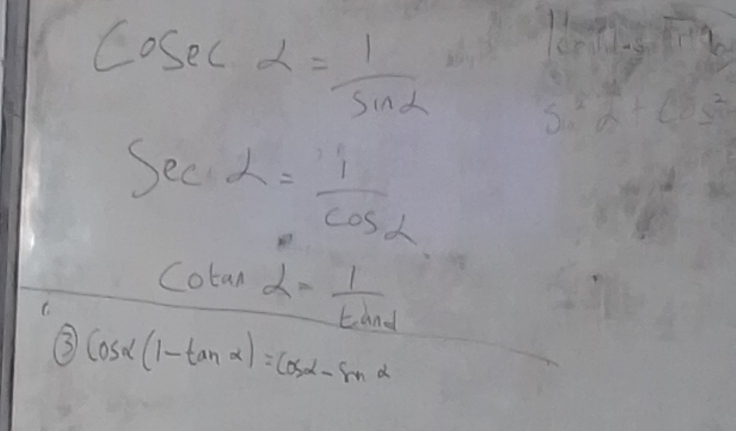 Cosec α = 1/sinα
Sec α = 1/cosα
Cotan α = 1/tanα
③ Cosα (1-tan α) = Cosα - Sin α